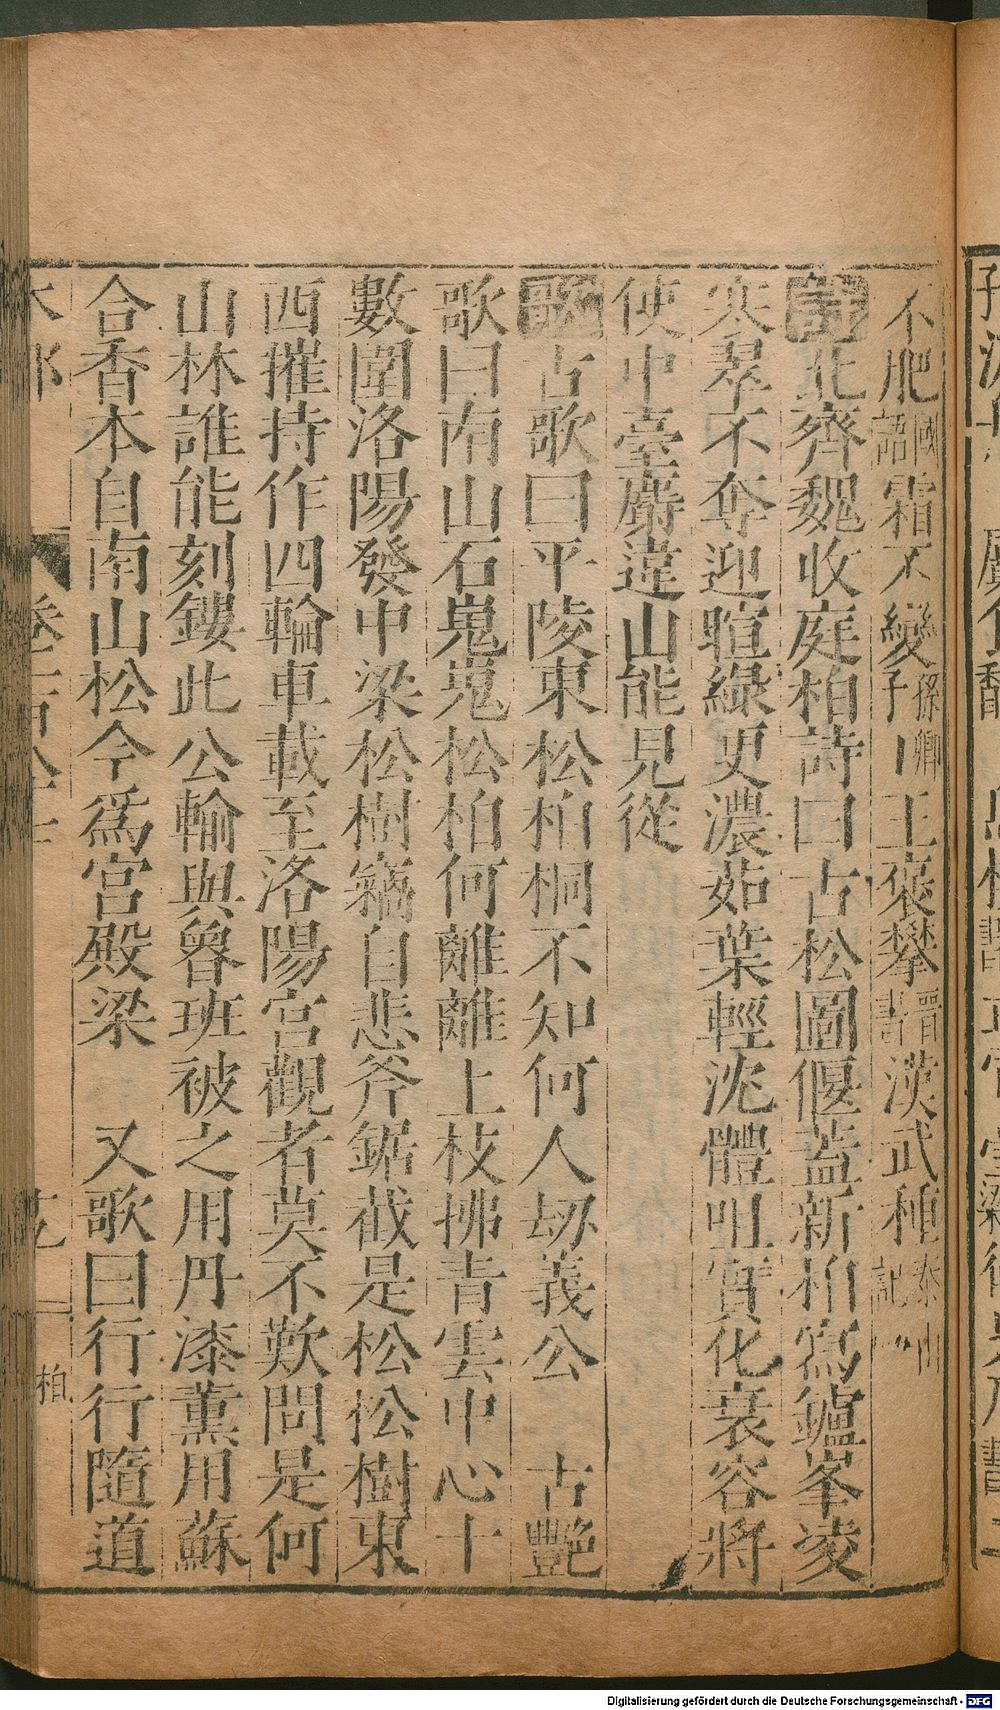 不肥國語霜不變孫卿子王裒攀晉書漢武種泰山記
詩北齊魏收庭柏詩曰古松圖偃蓋新柏寫鑪峯凌
寒翠不奪迎暄綠更濃茹葉輕沈體咀實化衰容將
使中臺麝違山能見從
歌古歌曰平陵東松柏桐不知何人刼義公 古艷
歌曰南山石嵬嵬松柏何離離上枝拂青雲中心十
數圍洛陽發中梁松樹竊自悲斧鋸截是松松樹東
西摧持作四輪車載至洛陽宮觀者莫不歎問是何
山林誰能刻鏤此公輸與魯班被之用丹漆薰用蘇
合香本自南山松今爲宮殿梁 又歌曰行行隨道
木部
柏
Digitalisierung gefördert durch die Deutsche Forschungsgemeinschaft - DFG